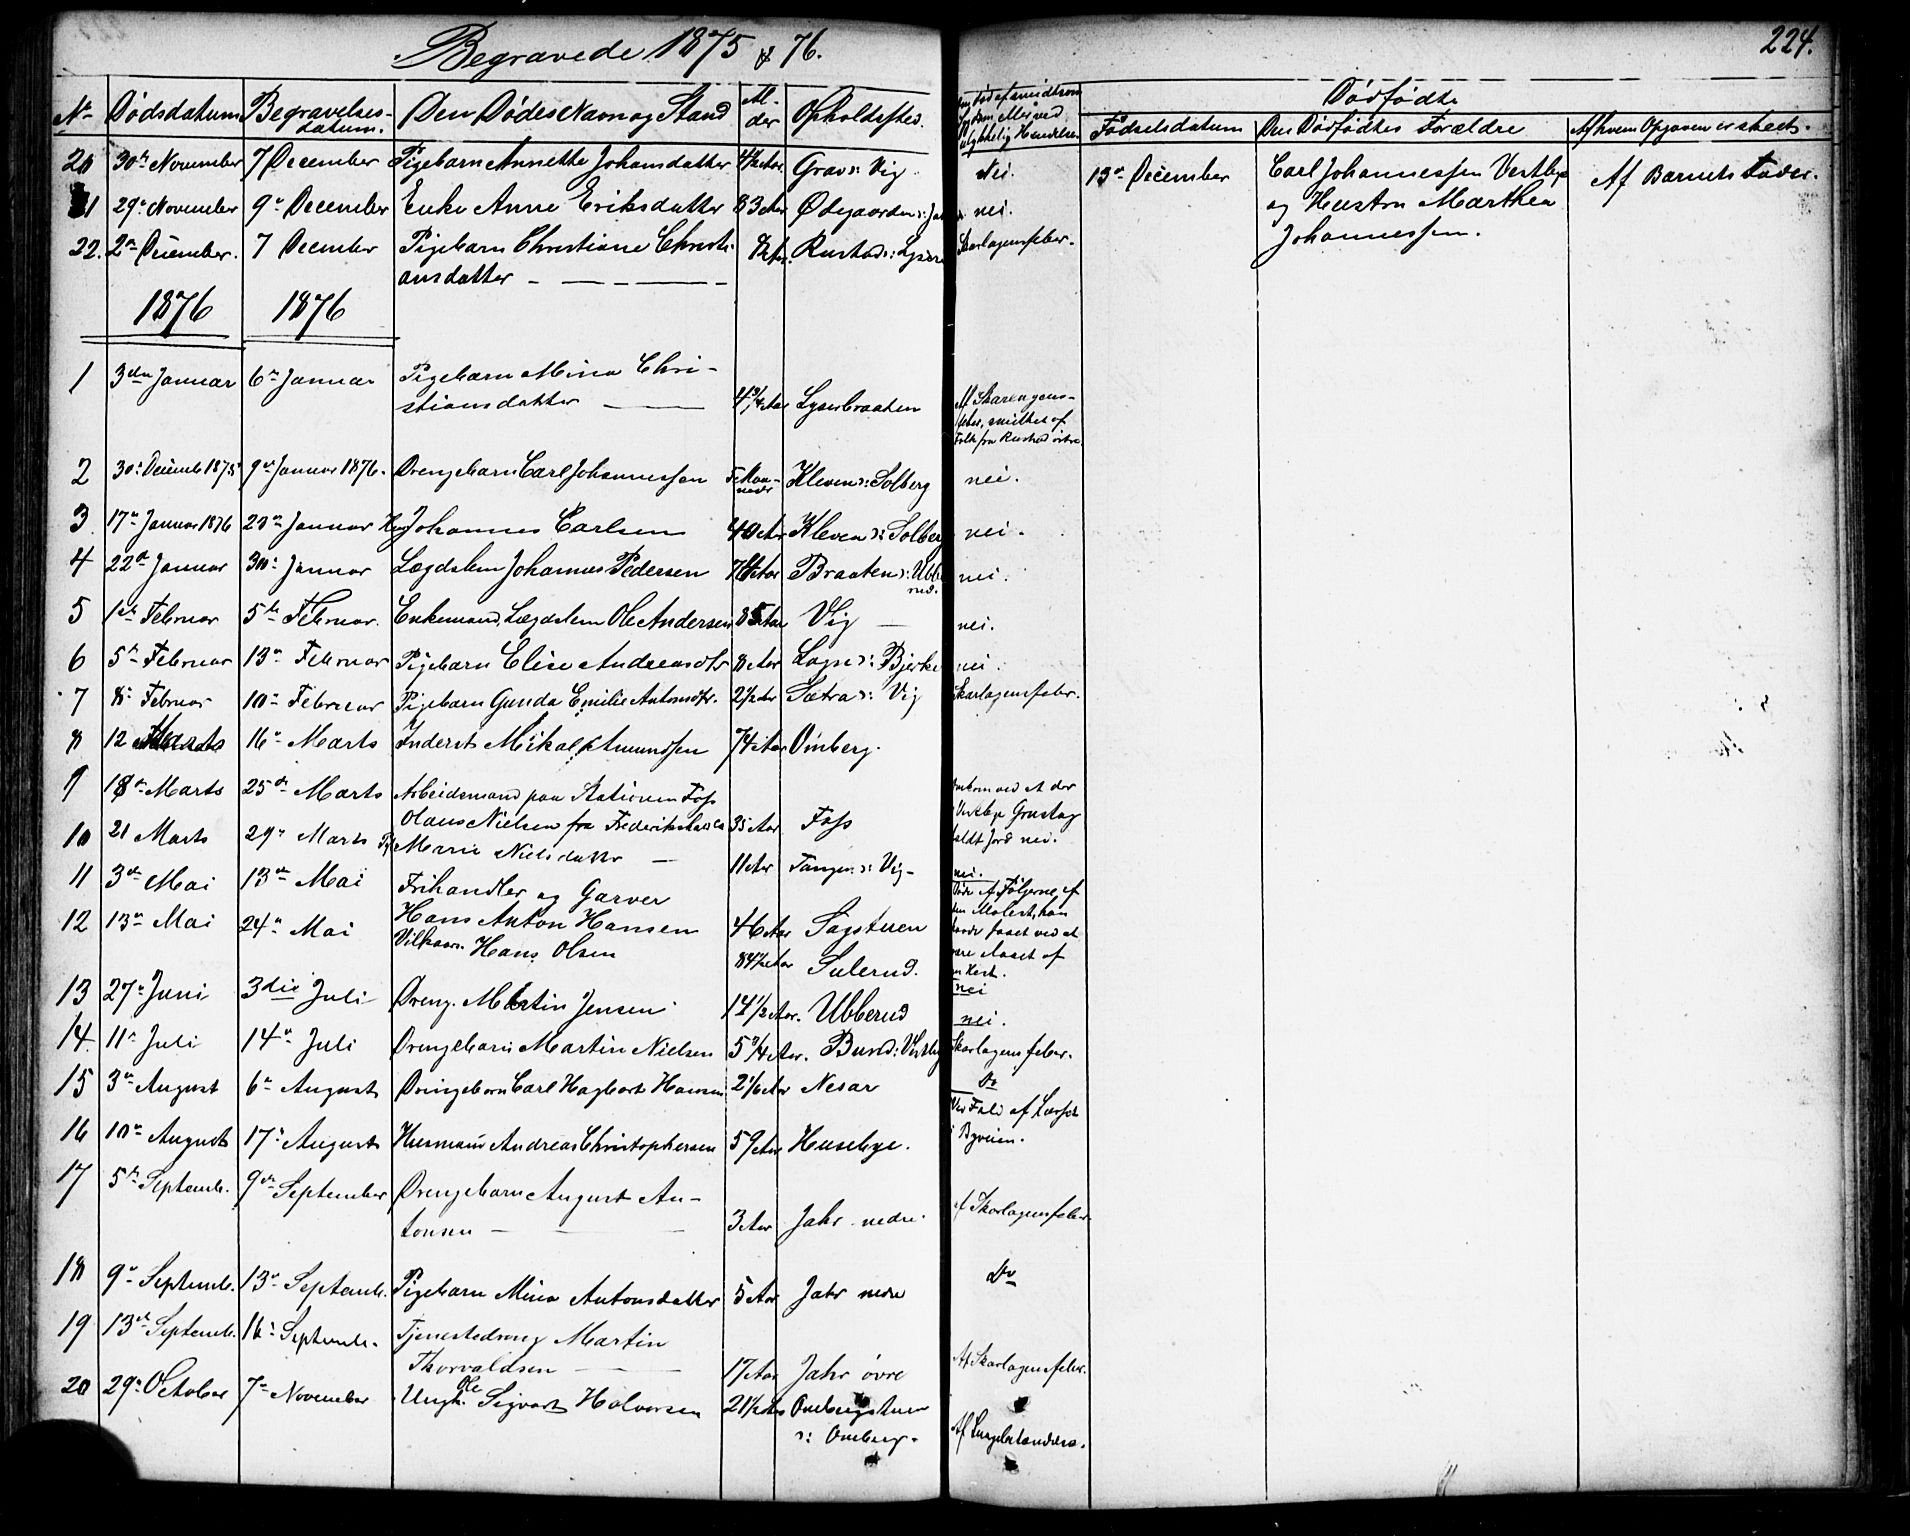 Begravede 1875 & 76.
224.
No Dødsdatum Begravelses-datum. Den Dødes Navn og Stand Alder Opholdssted.
Dødfødte
Fødselsdatum Den Dødfødtes Forældre Af hvem Opgaven er skeet.
20 30te November 7 December Pigebarn Annette Johansdatter 4½ Aar Grav s: Vig. Nei.
13de December Carl Johannessen Vestby og Hustru Marthea Johannessen. Af Barnets Fader.
21 29de November 9de December Enke Anne Eriksdatter 83 Aar Ødegaarden nei.
22. 2den December. 7 December Pigebarn Christiane Christiansdatter Rustad s: Skarlagensfeber.
1876 1876
1 3die Januar 6te Januar Pigebarn Mina Christiansdatter 4¾ Aar Lyserbraaten Af Skarlagensfeber, smittet af Folk fra Rustad østre.
2 30: Decemb 1875 9de Januar 1876. Drengebarn Carl Johannessen Maaneder Kleven s: Solberg nei.
3 17de Januar 1876 Januar Johannes Carlsen 40 Aar Kleven s: Solberg nei.
4 22de Januar 30: Januar Lægdslem Johannes Pedersen Braaten s: Ubberud. nei.
5 1ste Februar 5te Februar. Enkemand, Lægdslem Ole Andersen 85 Aar Vig nei.
6 5te Februar 13de Februar Pigebarn Elise Andreasdtr 8 Aar s: Bjerke nei.
7 8: Februar 10de Februar Pigebarn Gunda Emilie Antonsdtr. 2½ Aar Sætra s: Vig Skarlagensfeber.
8 12 Marts 16de Marts Inderst Mikal Amundsen 74 Aar Omberg.
9 18de Marts 25de Marts Arbeidsmand paa Stationen Fos Olaus Nielsen fra Frederikshald 35 Aar Foss Omkom ved at der i Vestbye Grustag faldt Jord ned.
10 21 Marts 29de Marts Marie Nielsdatter 11 Aar Tangen s: Vig nei.
11 3die Mai 13de Mai Frihandler og Garver Hans Anton Hansen 46 Aar Sagstuen Døde Af Følgerne af
12 13de Mai 24de Mai Vilkaarsm. Hans Olsen 84½ Aar Sulerud. nei
13 27de Juni 3die Juli Dreng. Martin Jensen 14½ Aar. Ubberud nei.
14. 11te Juli 14de Juli Drengebarn Martin Nielsen 5¾ Aar. Bund s: Vestby Skarlagensfeber.
15 3die August 6te August Drengebarn Carl Hagbart Hansen 2 1/6 Aar Nesar Do
16 10de August 17: August Husmand Andreas Christophersen 59 Aar Husebye. Ved Fald af Læsset i Byveien.
17 5te Septemb. 9de September Drengebarn August Antonsen 3 Aar Jahr nedre. Af Skarlagensfeber.
18 9de Septemb. 13de Septemb. Pigebarn Mina Antonsdatter 5 Aar Jahr nedre Do
19 13de Septemb. 16: Septemb. Tjenestedreng Martin Thorvaldsen 17 Aar Jahr øvre Af Skarlagensfeber.
20 29de October 7de November Ungk. Ole Sigvart Halvorsen 21½ Aar Ombergstuen s: Omberg.